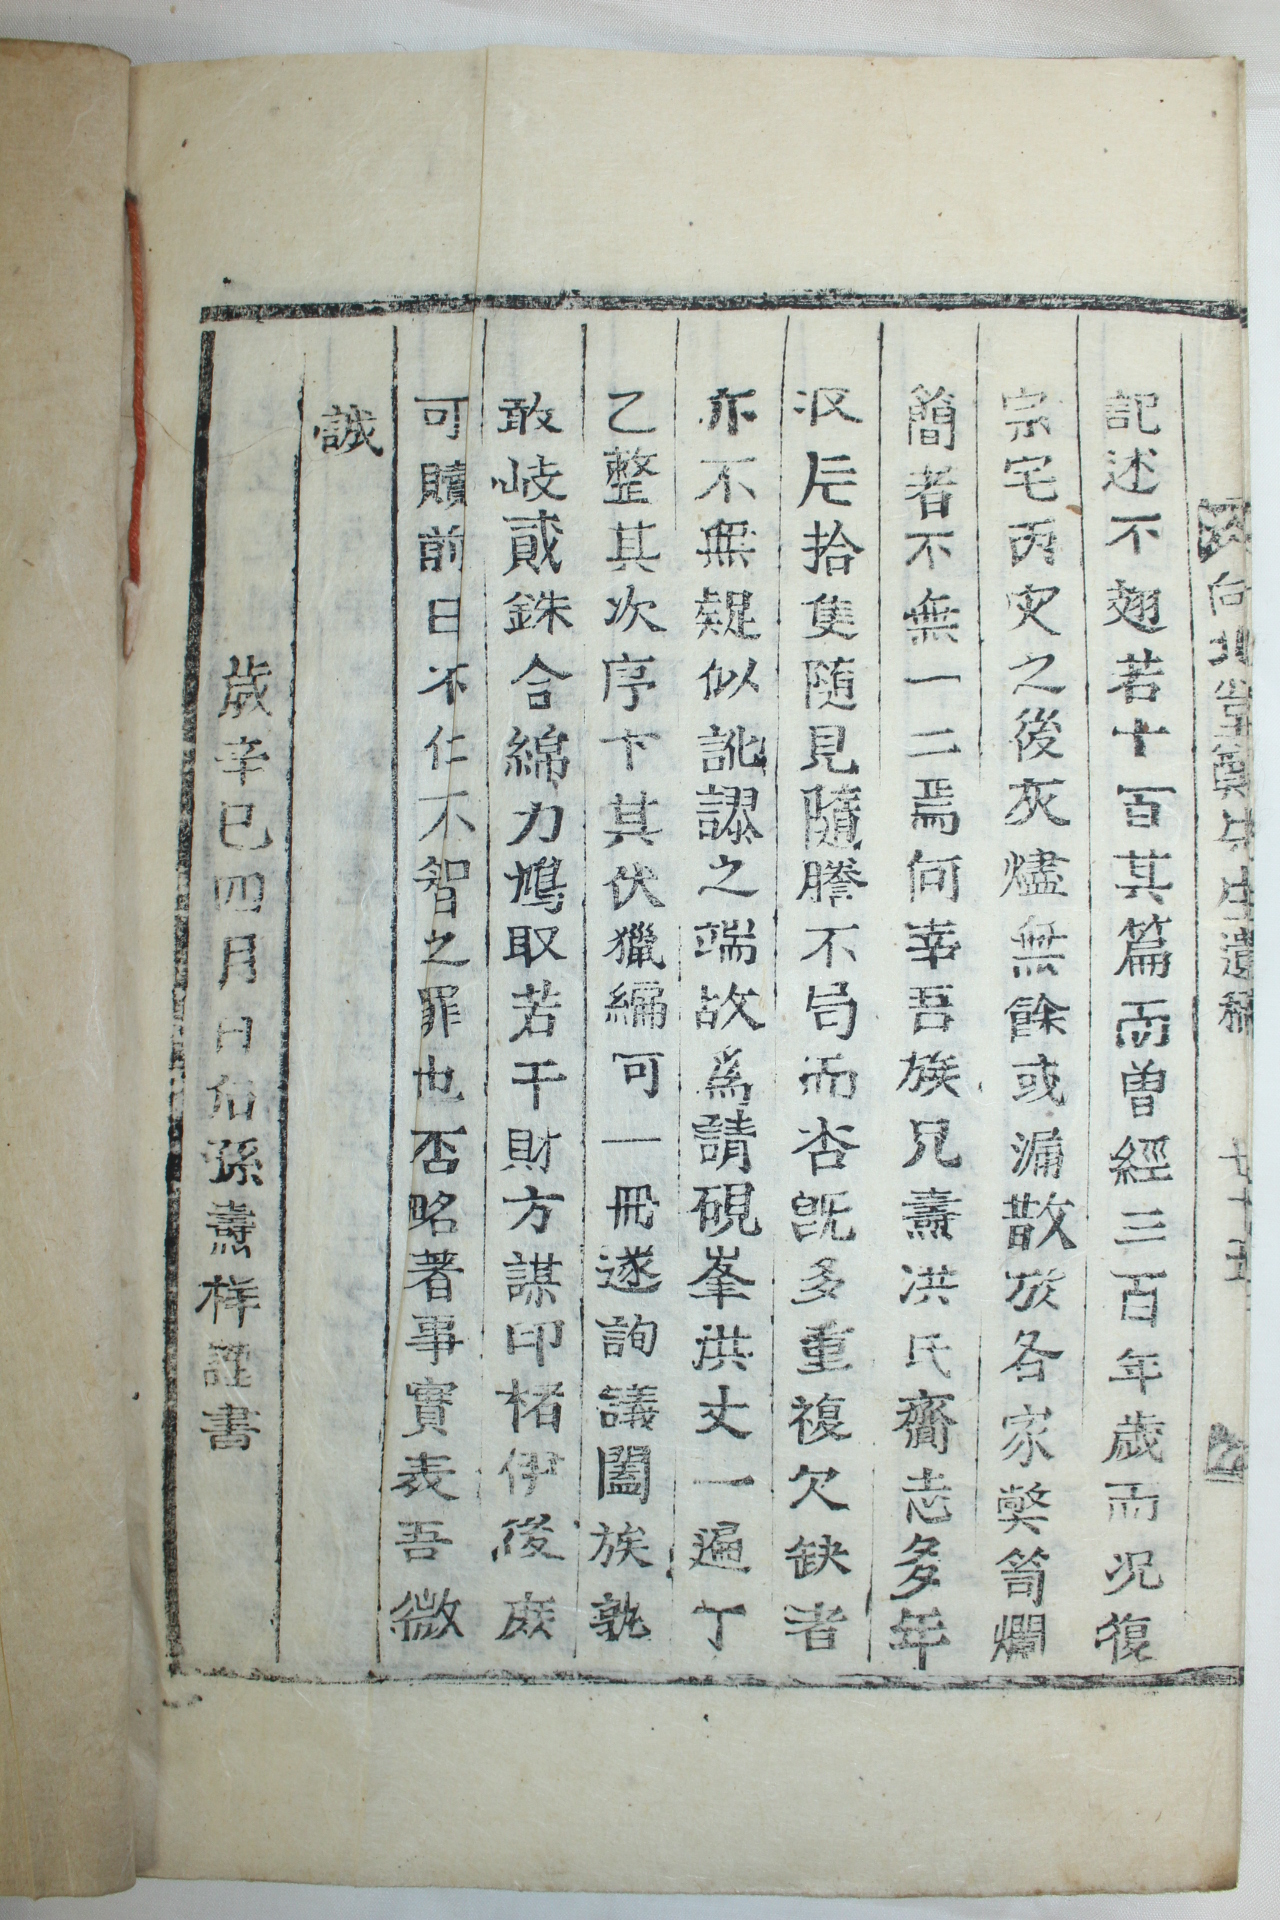 向北堂鄭先生遺稿 廿十五
記述不翅若十百其篇而曾經三百年歲而况復
宗宅丙灾之後灰燼無餘或漏散於各家獘笥爛
簡者不無一二焉何幸吾族兄燾洪氏齎志多年
汲汲拾隻随見隨謄不局而沓旣多重複欠缺者
亦不無疑似訛謬之端故爲請硯峯洪丈一遍丁
乙整其次序卞其伏獵編可一冊遂詢議闔族孰
敢岐貳銖合綿力鳩取若干財方謀印栢伊後庶
可贖前日不仁不智之罪也否略著事實表吾微
誠
歲辛巳四月日 孫燾祥謹書